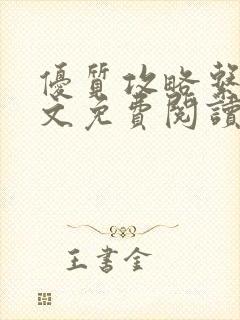 優質攻略繫
文免費閱讀
王書金